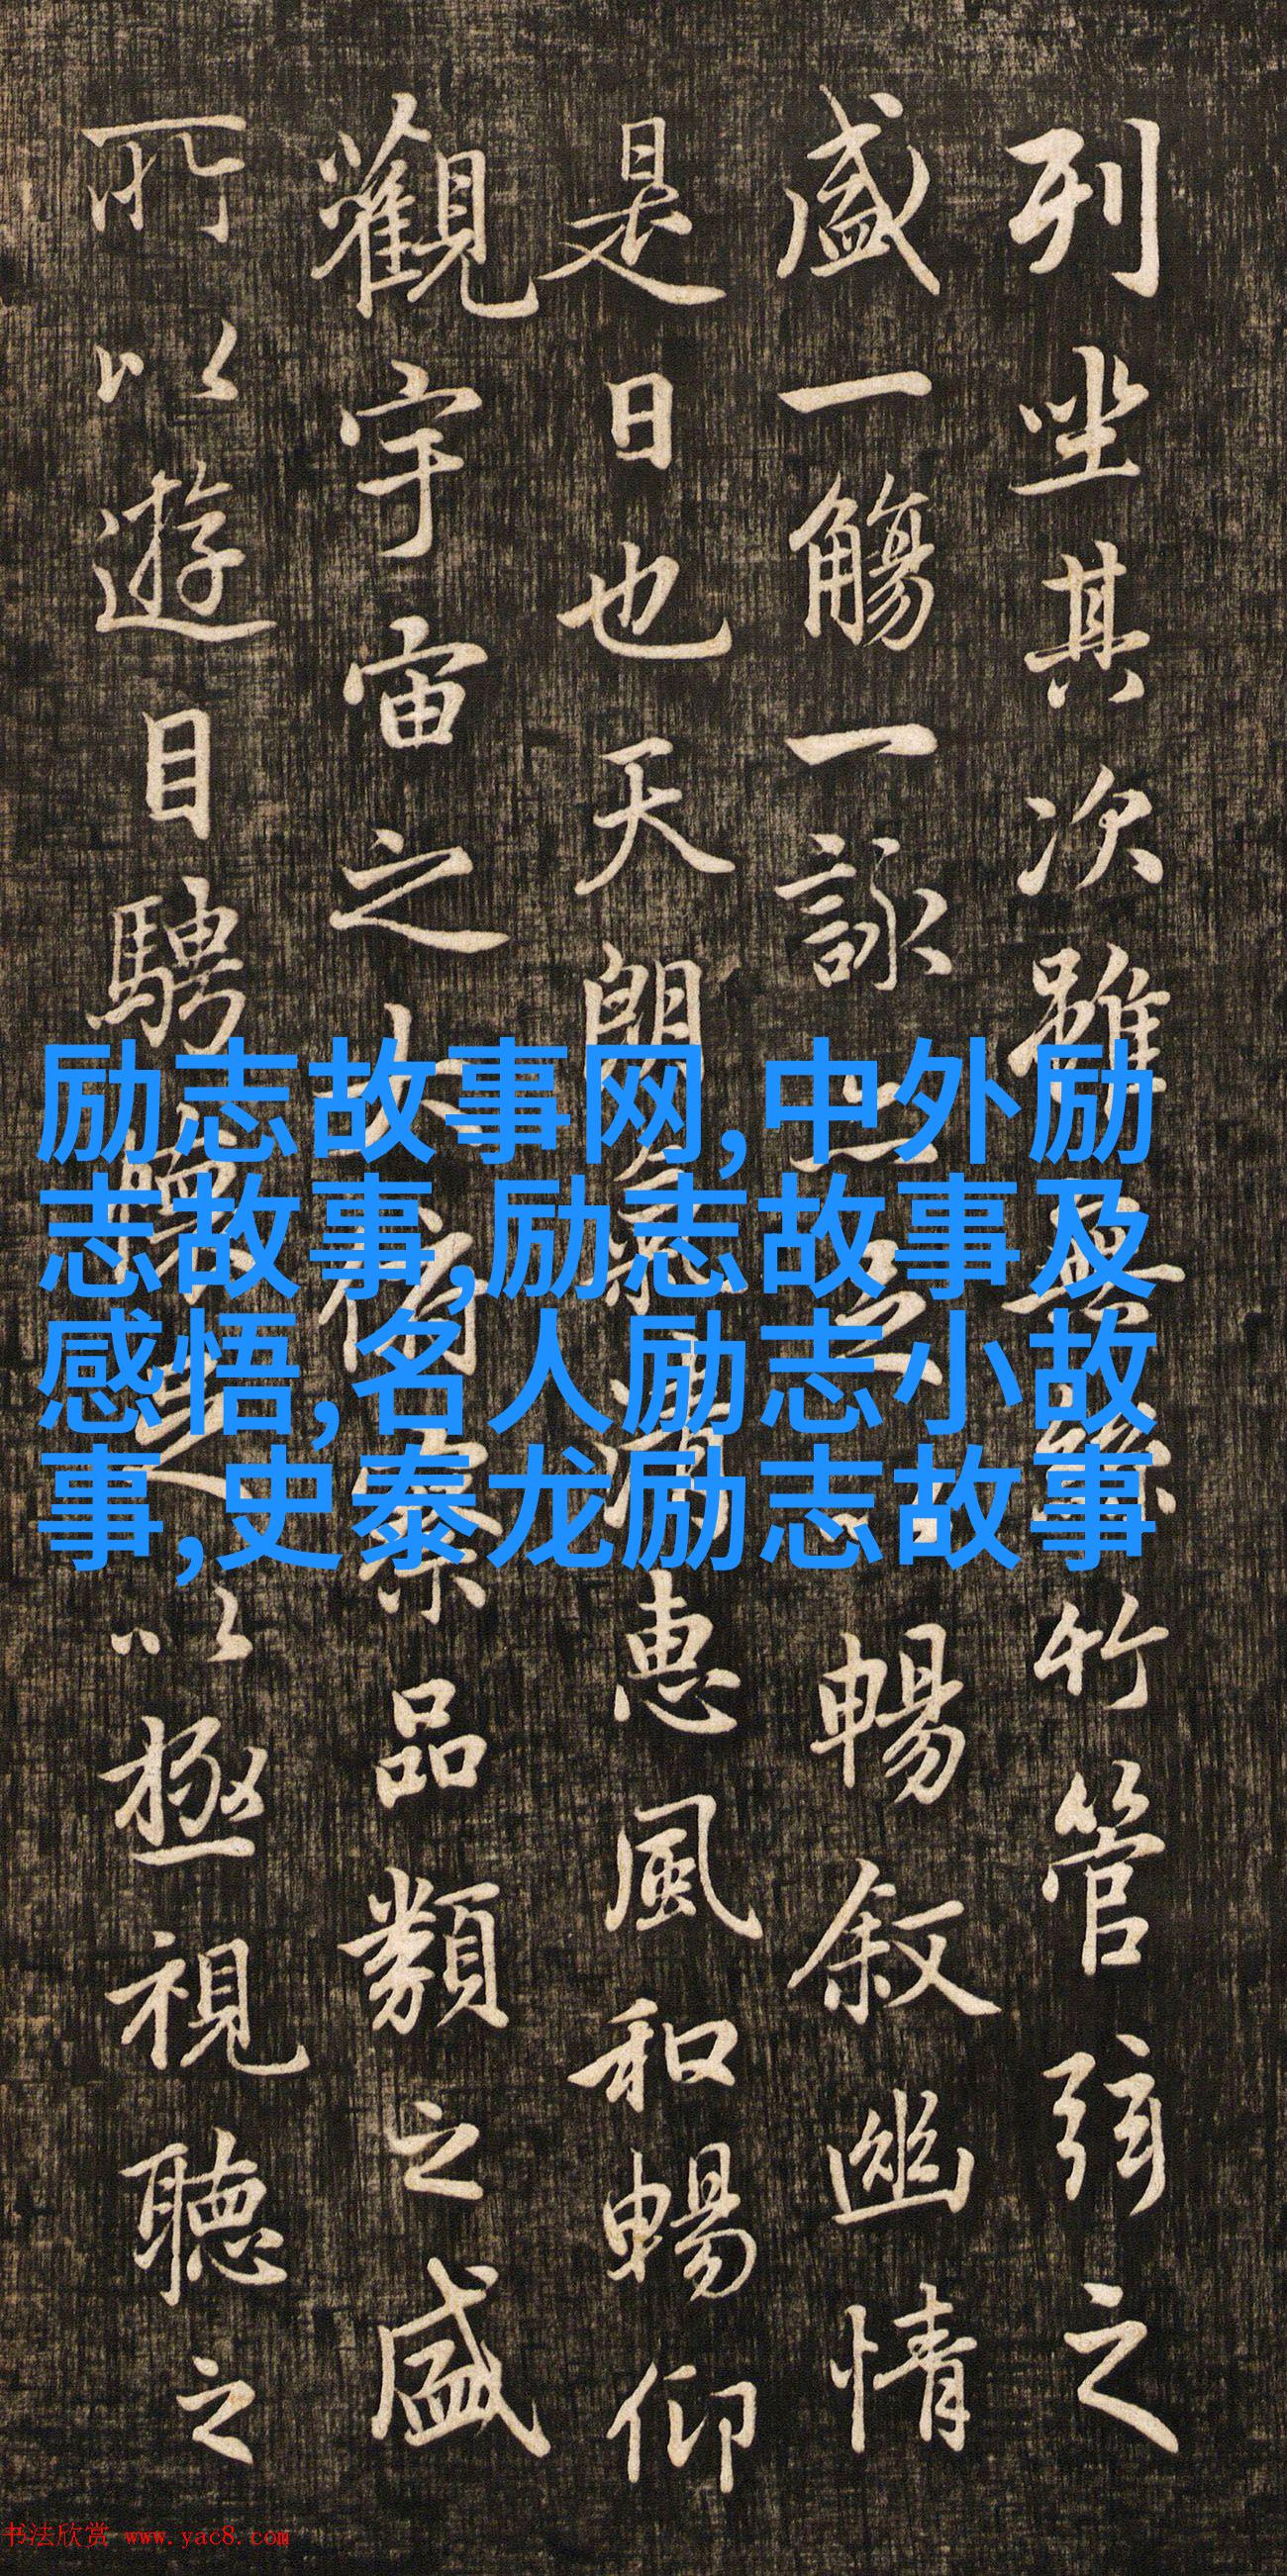 列坐其次雖竹管弦之
盛一觴一詠暢叙幽情
是日也天朗惠風和暢仰
觀宇宙之品類之盛
所以遊目騁以極視聽之
励志故事网,中外励
志故事,励志故事及
感悟,名人励志小故
事,史泰龙励志故事
书法欣赏 www.yac8.com